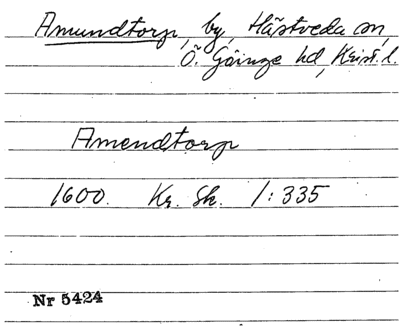 Amundtorp, by, Hästveda sn,
Ö. Göinge hd, Krist. l.
Amendtorp
1600. Kr. Sk. 1:335
Nr 5424